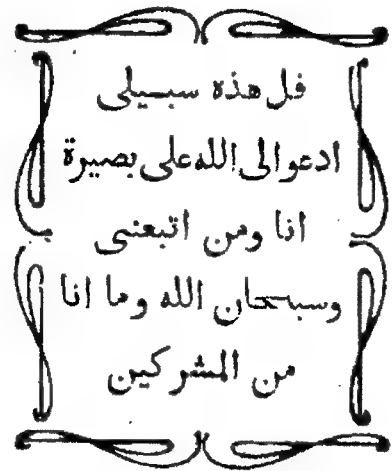 قل هذه سبيلى
ادعو الى الله على بصيرة
انا ومن اتبعنى
وسبحان الله وما انا
من المشركين